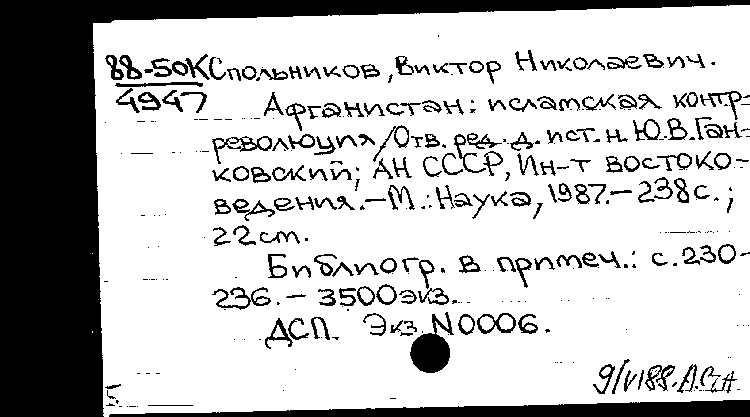 88-50К Спольников, Виктор Николаевич.
4947 Афганистан: исламская контр-
революция / Отв. ред. д. ист. н. Ю.В. Ган-
ковский; АН СССР, Ин-т востоко-
ведения. – М.: Наука, 1987. – 238с.;
22см.
Библиогр. в примеч.: с. 230-
236. – 3500 экз.
ДСП. Экз. N0006.
9/VI88.
5